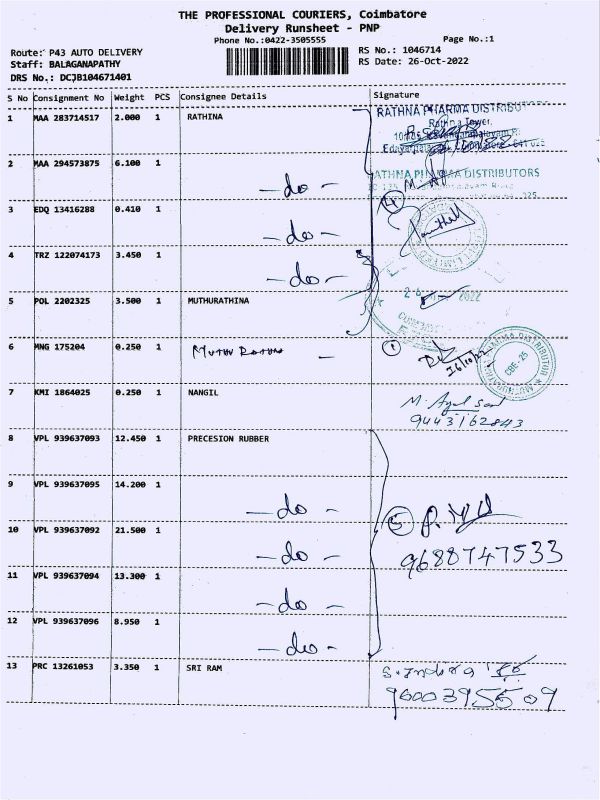 THE PROFESSIONAL COURIERS, Coimbatore
Delivery Runsheet - PNP
Phone No.:0422-3505555
Page No.:1
Route: P43 AUTO DELIVERY
RS No.: 1046714
Staff: BALAGANAPATHY
RS Date: 26-Oct-2022
DRS No.: DCJB104671401
S No Consignment No Weight PCS Consignee Details Signature
1 MAA 283714517 2.000 1 RATHINA
RATHNA PHARMA DISTRIBUTORS
Rathna Tower,
2 MAA 294573875 6.100 1 -do-
RATHNA PHARMA DISTRIBUTORS
3 EDQ 13416288 0.410 1 -do-
4
4 TRZ 122074173 3.450 1 -do-
5 POL 2202325 3.500 1 MUTHURATHINA
2022
6 MNG 175204 0.250 1 MUTHU RATHNA -
1
26/10/22
CBE-25
7 KMI 1864025 0.250 1 NANGIL
9443162843
8 VPL 939637093 12.450 1 PRECESION RUBBER
9 VPL 939637095 14.200 1 -do-
5
10 VPL 939637092 21.500 1 -do-
9688747533
11 VPL 939637094 13.300 1 -do-
12 VPL 939637096 8.950 1 -do-
13 PRC 13261053 3.350 1 SRI RAM
S. Indira
9600395509